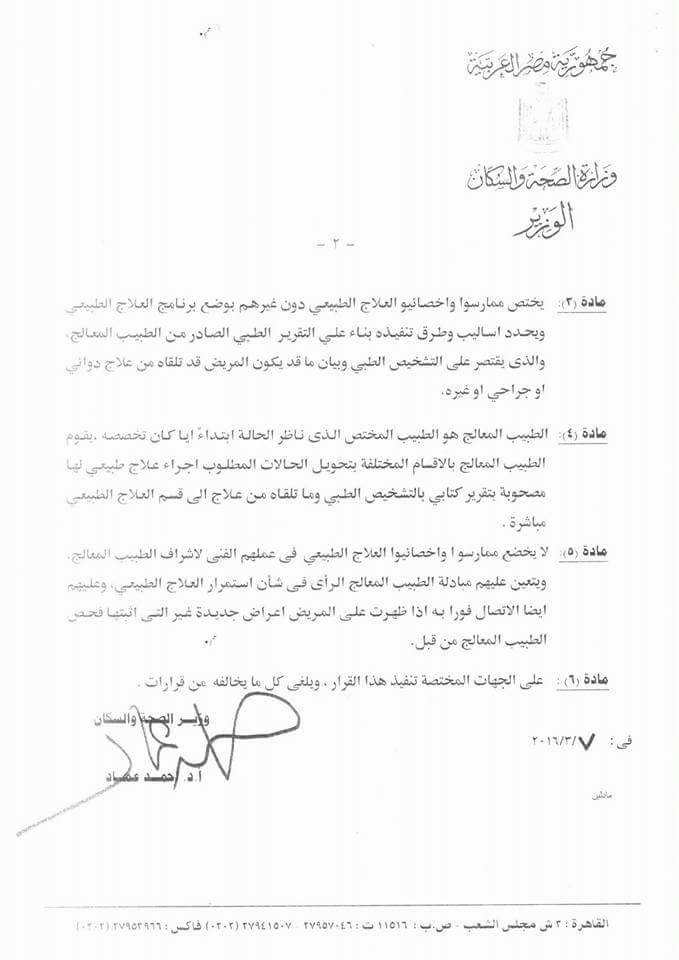 جمهورية مصر العربية
وزارة الصحة والسكان
الوزير
- ٢ -
مادة (٣): يختص ممارسوا واخصائيو العلاج الطبيعي دون غيرهم بوضع برنامج العلاج الطبيعي
ويحدد اساليب وطرق تنفيذه بناء علي التقرير الطبي الصادر من الطبيب المعالج،
والذى يقتصر على التشخيص الطبي وبيان ما قد يكون المريض قد تلقاه من علاج دوائي
او جراحي او غيره.
مادة (٤): الطبيب المعالج هو الطبيب المختص الذى ناظر الحالة ابتداءً ايا كان تخصصه ،يقوم
الطبيب المعالج بالاقسام المختلفة بتحويل الحالات المطلوب اجراء علاج طبيعي لها
مصحوبة بتقرير كتابي بالتشخيص الطبي وما تلقاه من علاج الى قسم العلاج الطبيعي
مباشرة .
مادة (٥): لا يخضع ممارسوا واخصائيوا العلاج الطبيعي فى عملهم الفنى لاشراف الطبيب المعالج،
ويتعين عليهم مبادلة الطبيب المعالج الرأى فى شأن استمرار العلاج الطبيعي، وعليهم
ايضا الاتصال فورا به اذا ظهرت على المريض اعراض جديدة غير التى اثبتها فحص
الطبيب المعالج من قبل.
مادة (٦): على الجهات المختصة تنفيذ هذا القرار ، ويلغى كل ما يخالفه من قرارات .
وزير الصحة والسكان
فى : ٢٠١٦/٣/٧
أ.د. احمد عماد
مادلين
القاهرة : ٣ ش مجلس الشعب - ص.ب : ١١٥١٦ ت : ٢٧٩٥٧٠٤٦ - ٢٧٩٤١٥٠٧ (٠٢٠٢) فاكس : ٢٧٩٥٣٩٦٦ (٠٢٠٢)